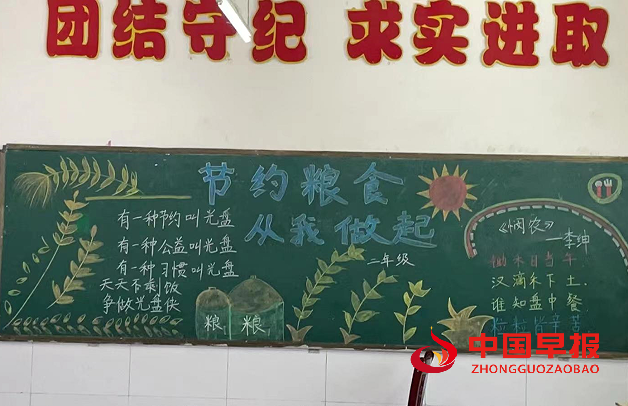 团结守纪 求实进取
节约粮食
从我做起
二年级
有一种节约叫光盘
有一种公益叫光盘
有一种习惯叫光盘
天天不剩饭
争做光盘侠
粮 粮
《悯农》
—李坤
锄禾日当午
汉滴禾下土.
谁知盘中餐
粒粒皆辛苦
中国早报
ZHONGGUOZAOBAO